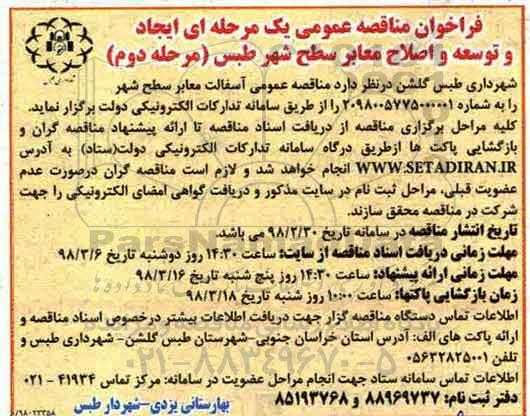 فراخوان مناقصه عمومی یک مرحله ای ایجاد
و توسعه و اصلاح معابر سطح شهر طبس (مرحله دوم)
شهرداری طبس گلشن درنظر دارد مناقصه عمومی آسفالت معابر سطح شهر
را به شماره ۲۰۹۸۰۰۵۷۷۵۰۰۰۰۰۱ را از طریق سامانه تدارکات الکترونیکی دولت برگزار نماید.
کلیه مراحل برگزاری مناقصه از دریافت اسناد مناقصه تا ارائه پیشنهاد مناقصه گران و
بازگشایی پاکت ها ازطریق درگاه سامانه تدارکات الکترونیکی دولت(ستاد) به آدرس
WWW.SETADIRAN.IR انجام خواهد شد و لازم است مناقصه گران درصورت عدم
عضویت قبلی، مراحل ثبت نام در سایت مذکور و دریافت گواهی امضای الکترونیکی را جهت
شرکت در مناقصه محقق سازند.
تاریخ انتشار مناقصه در سامانه تاریخ ۹۸/۲/۳۰ می باشد.
مهلت زمانی دریافت اسناد مناقصه از سایت: ساعت ۱۴:۳۰ روز دوشنبه تاریخ ۹۸/۳/۶
مهلت زمانی ارائه پیشنهاد: ساعت ۱۴:۳۰ روز پنج شنبه تاریخ ۹۸/۳/۱۶
زمان بازگشایی پاکتها: ساعت ۱۰:۰۰ روز شنبه تاریخ ۹۸/۳/۱۸
اطلاعات تماس دستگاه مناقصه گزار جهت دریافت اطلاعات بیشتر درخصوص اسناد مناقصه و
ارائه پاکت های الف: آدرس استان خراسان جنوبی-شهرستان طبس گلشن- شهرداری طبس و
تلفن ۰۵۶۳۲۸۲۵۰۰۱
اطلاعات تماس سامانه ستاد جهت انجام مراحل عضویت در سامانه: مرکز تماس ۴۱۹۳۴ - ۰۲۱
دفتر ثبت نام: ۸۸۹۶۹۷۳۷ و ۸۵۱۹۳۷۶۸
بهارستانی یزدی-شهردار طبس
ParsNamadData
۰۲۱-۸۸۳۴۹۶۷۰-۵